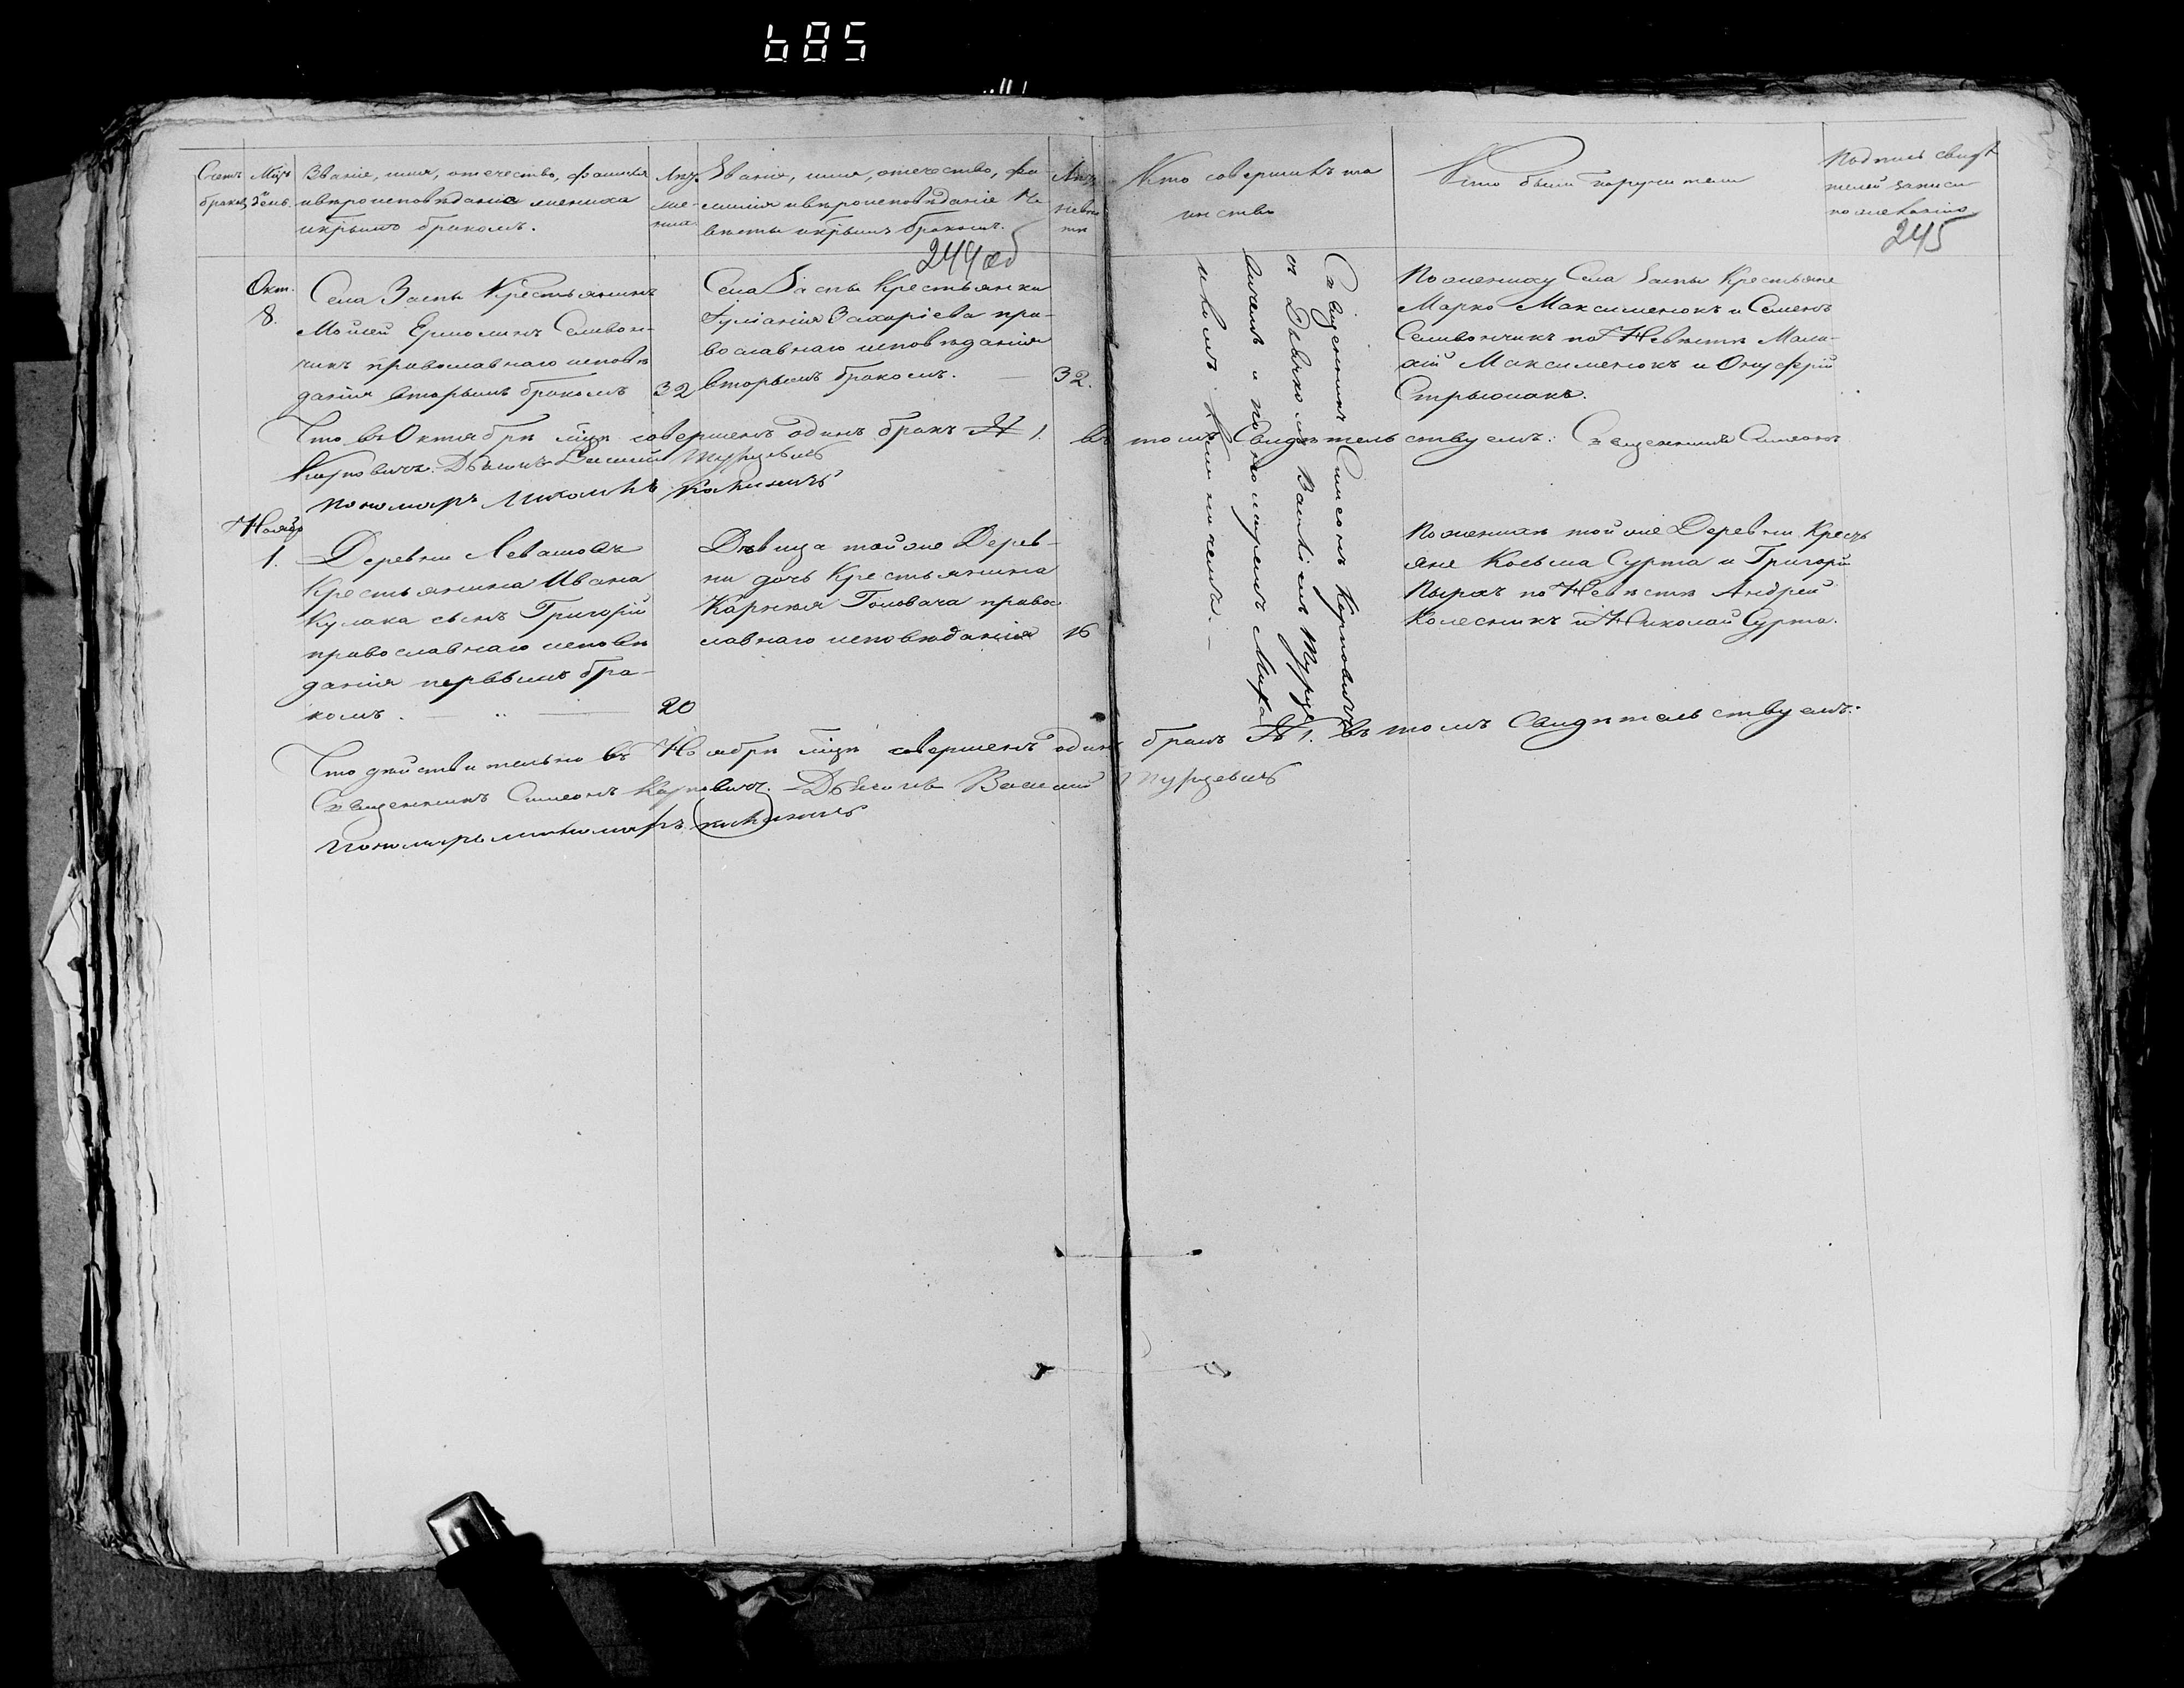 685
Счетъ браковъ
Мцъ и день.
Званіе, имя, отечество, фамилія
и вѣроисповѣданіе жениха
и крымъ бракомъ.
Лѣта
же-
ниха
Званіе, имя, отечество, фа-
милія и вѣроисповѣданіе Не-
вѣсты и крымъ бракомъ.
244 об
Лѣта
невѣс
ты
Кто совершилъ та
инство
Кто были поручители
Подпись свидѣ
телей записи
по желанію
245
Окт.
8.
Села Заспы Крестьянинъ
Мойсей Ермолинъ Селивон-
чикъ православнаго исповѣ
данія вторымъ бракомъ
32
Села Заспы Крестьянки
Іуліанія Захаріева пра-
вославнаго исповѣданія
вторымъ бракомъ. —
32.
Священникъ Симеонъ Карповичъ
съ Дьячкомъ Василіемъ Пурце
вичемъ и пономаремъ Миха
иломъ
По жениху Села Заспы Крестьяне
Марко Максименокъ и Семенъ
Селивончикъ по Невѣстѣ Мала-
хій Максименокъ и Онуферій
Что въ Октябрѣ мцѣ совершенъ одинъ бракъ № 1. въ томъ Свидѣтельствуемъ: Священникъ Симеонъ
Карповичъ. Дьячокъ Василій Пурцевичъ
пономарь Михаилъ
Ноябр
1.
Деревни Левашовъ
Крестьянина Ивана
Кулака сынъ Григорій
православнаго исповѣ
данія первымъ бра-
комъ. —
20
Дѣвица той же Дерев-
ни дочь Крестьянина
Карнея Головача право
славнаго исповѣданія
16
По женихѣ той же Деревни Кресть
яне Косьма Сурта и Григорій
Пырхъ по Невѣстѣ Андрей
Колесникъ и Николай Сурта.
Что дѣйствительно въ Ноябрѣ мцѣ совершенъ одинъ бракъ № 1. въ томъ Свидѣтельствуемъ:
Священникъ Симеонъ Карповичъ. Дьячокъ Василій Пурцевичъ
Пономарь